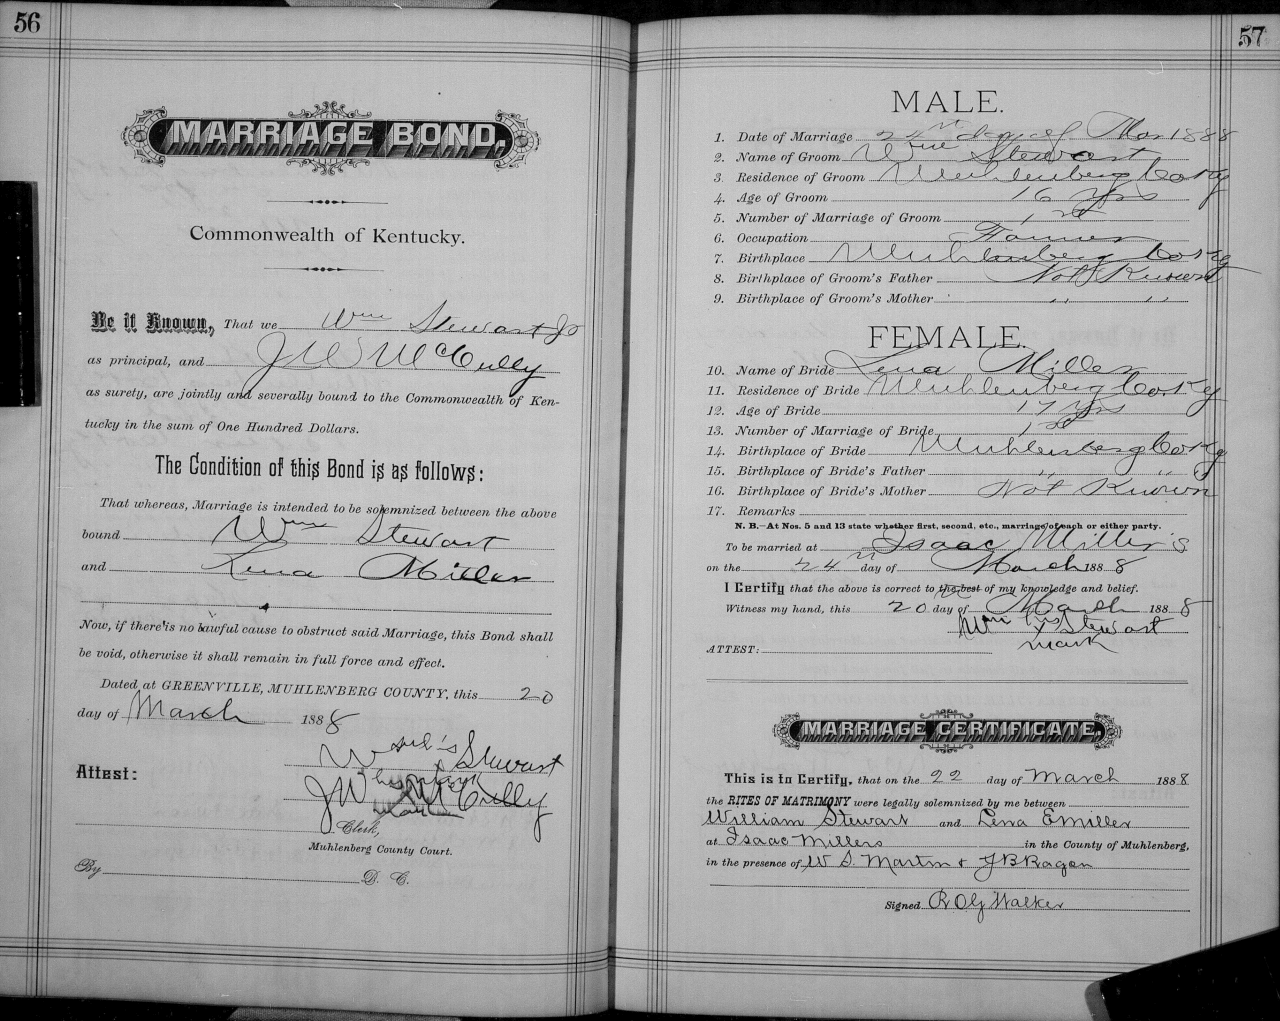 56
MARRIAGE BOND.
Commonwealth of Kentucky.
Be it Known, That we Wm Stewart Jr
as principal, and J W McCully
as surety, are jointly and severally bound to the Commonwealth of Ken-
tucky in the sum of One Hundred Dollars.
The Condition of this Bond is as follows:
That whereas, Marriage is intended to be solemnized between the above
bound Wm Stewart
and Lena Miller
Now, if there is no lawful cause to obstruct said Marriage, this Bond shall
be void, otherwise it shall remain in full force and effect.
Dated at GREENVILLE, MUHLENBERG COUNTY, this 20
day of March 1888
Wm his Stewart
Attest: J W McCully
mark
Clerk,
Muhlenberg County Court.
By D. C.
57
MALE.
1. Date of Marriage 24 day of Mar 1888
2. Name of Groom Wm Stewart
3. Residence of Groom Muhlenberg Co Ky
4. Age of Groom 16 yrs
5. Number of Marriage of Groom 1st
6. Occupation Farmer
7. Birthplace Muhlenberg Co Ky
8. Birthplace of Groom's Father Not Known
9. Birthplace of Groom's Mother " "
FEMALE.
10. Name of Bride Lena Miller
11. Residence of Bride Muhlenberg Co. Ky
12. Age of Bride 17 yrs
13. Number of Marriage of Bride 1st
14. Birthplace of Bride Muhlenberg Co Ky
15. Birthplace of Bride's Father " " "
16. Birthplace of Bride's Mother Not Known
17. Remarks
N. B.—At Nos. 5 and 13 state whether first, second, etc., marriage of each or either party.
To be married at Isaac Miller's
on the 24 day of March 1888
I Certify that the above is correct to the best of my knowledge and belief.
Witness my hand, this 20 day of March 1888
Wm his x Stewart
ATTEST: mark
MARRIAGE CERTIFICATE.
This is to Certify, that on the 22 day of March 1888
the RITES OF MATRIMONY were legally solemnized by me between
William Stewart and Lena E Miller
at Isaac Millers in the County of Muhlenberg,
in the presence of W S. Martin & J B Ragen
Signed Walker